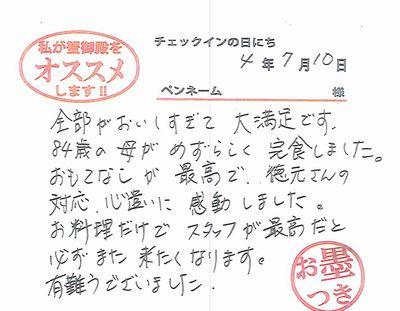 私が蟹御殿を
オススメ
します!!
チェックインの日にち
4年7月10日
ペンネーム 様
全部がおいしすぎて 大満足です。
84歳の母が めずらしく 完食しました。
おもてなしが 最高で、徳元さんの
対応、心遣いに 感動しました。
お料理だけで スタッフが最高だと
必ずまた 来たくなります。
有難うございました.
お墨
つき